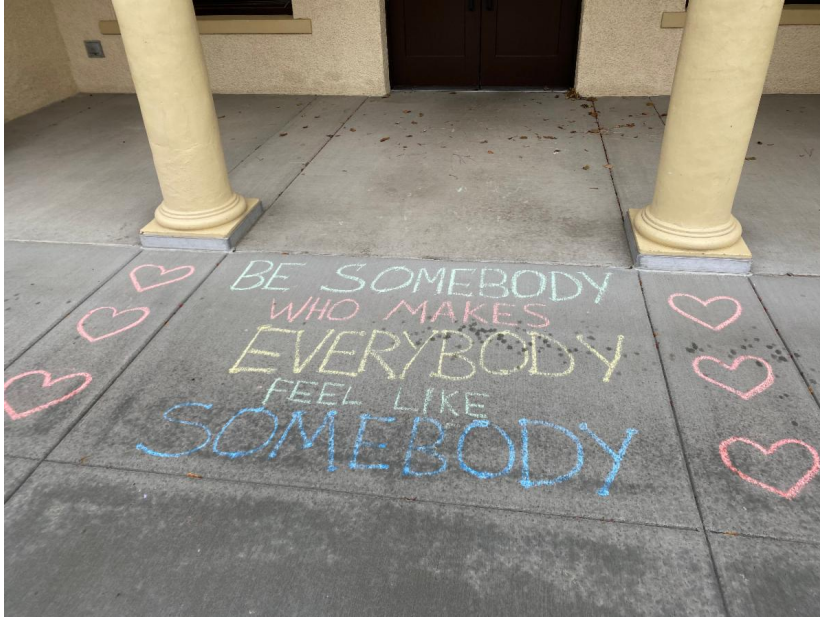 BE SOMEBODY
WHO MAKES
EVERYBODY
FEEL LIKE
SOMEBODY